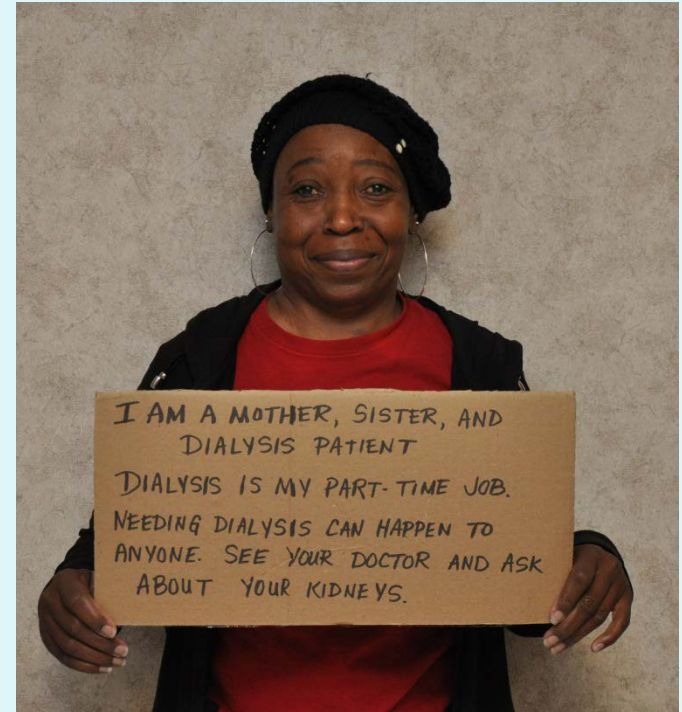 I AM A MOTHER, SISTER, AND
DIALYSIS PATIENT
DIALYSIS IS MY PART-TIME JOB.
NEEDING DIALYSIS CAN HAPPEN TO
ANYONE. SEE YOUR DOCTOR AND ASK
ABOUT YOUR KIDNEYS.